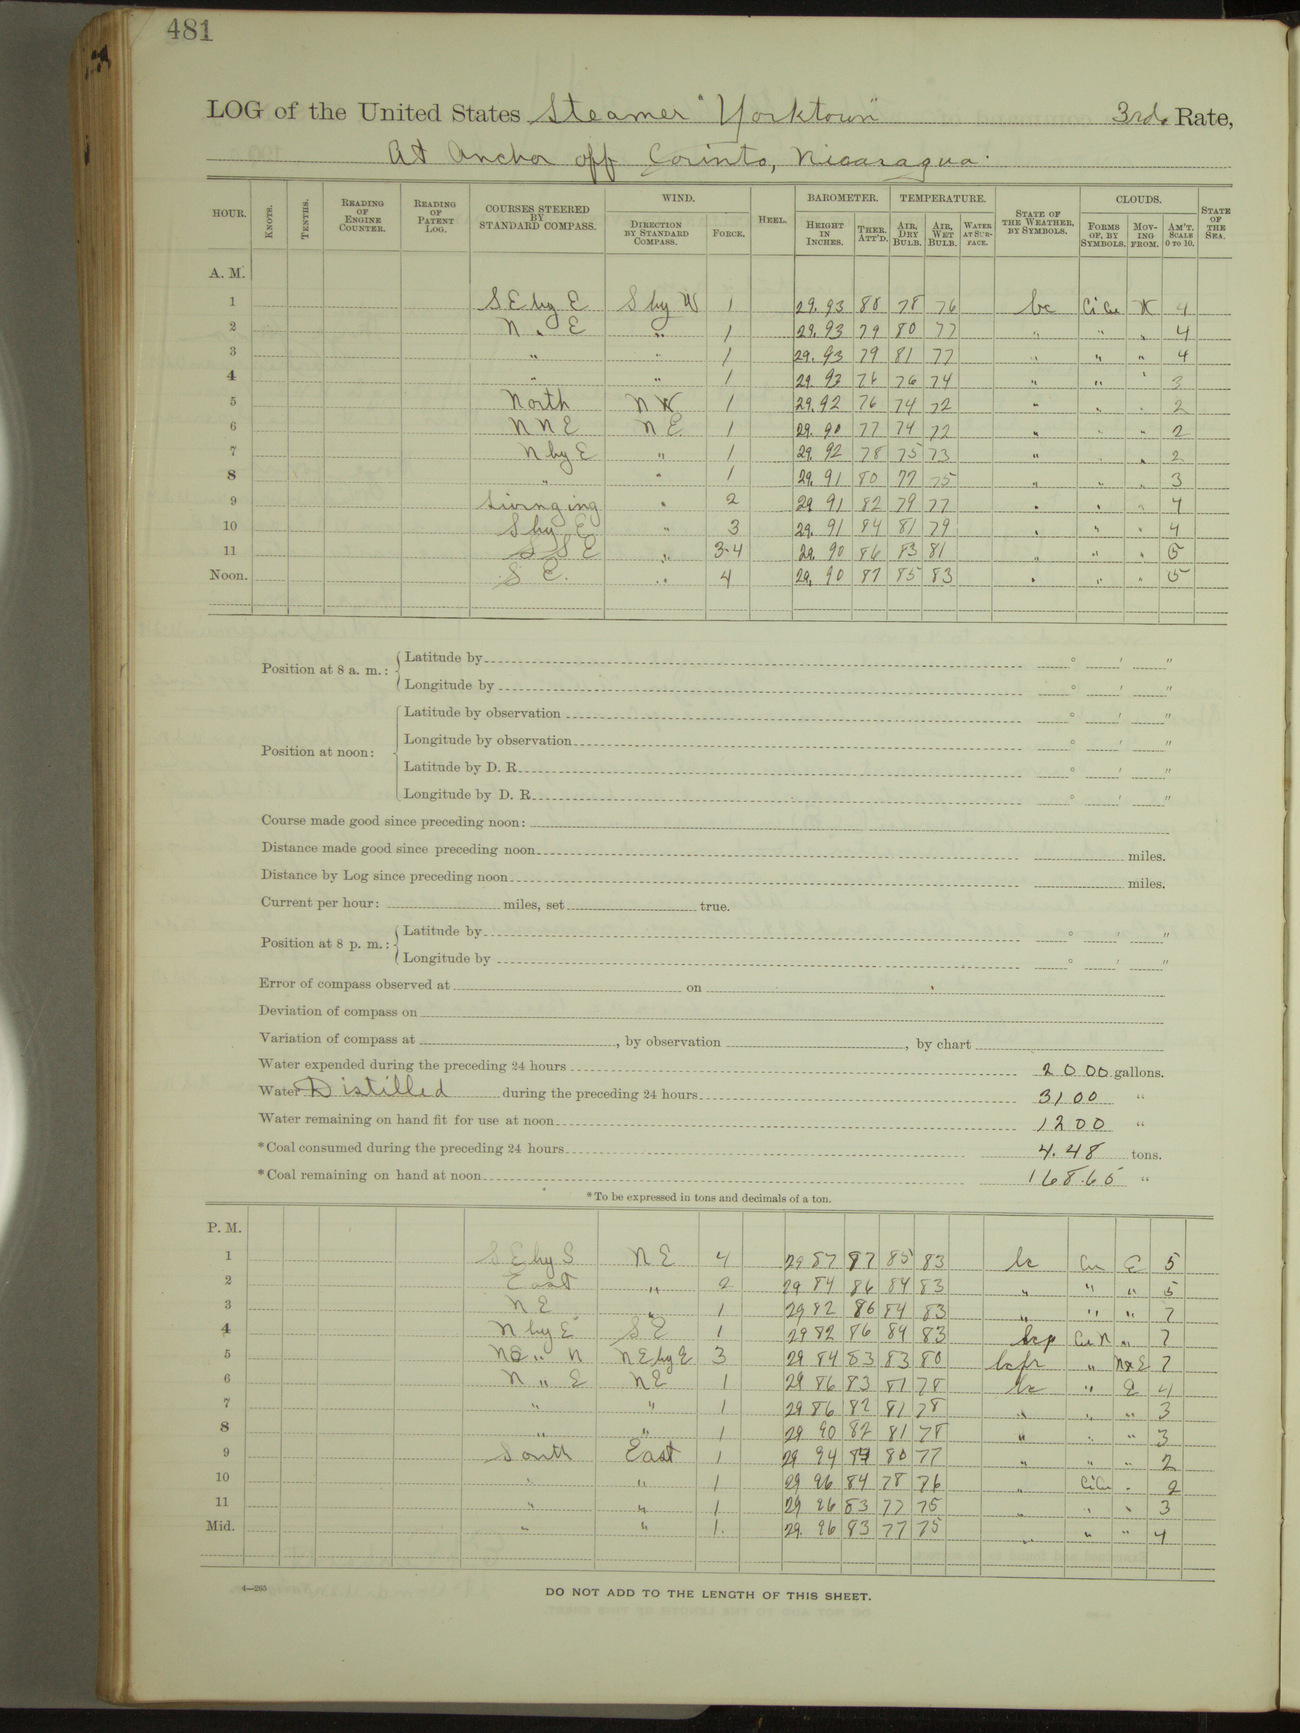 481
LOG of the United States Steamer "Yorktown" 3rd. Rate,
At Anchor off Corinto, Nicaragua.
HOUR. KNOTS. TENTHS. READING OF ENGINE COUNTER. READING OF PATENT LOG. COURSES STEERED BY STANDARD COMPASS. WIND. DIRECTION BY STANDARD COMPASS. FORCE. HEEL. BAROMETER. HEIGHT IN INCHES. THER. ATT'D. TEMPERATURE. AIR, DRY BULB. AIR, WET BULB. WATER AT SURFACE. STATE OF THE WEATHER, BY SYMBOLS. CLOUDS. FORMS OF, BY SYMBOLS. MOVING FROM. AM'T, SCALE 0 TO 10. STATE OF THE SEA.
A. M.
1 SE by E S by W 1 29.93 80 78 76 bc Ci Cu W 4
2 N " E " 1 29.93 79 80 77 " " " 4
3 " " 1 29.93 79 81 77 " " " 4
4 " " 1 29.92 76 76 74 " " " 3
5 North NW 1 29.92 76 74 72 " " " 2
6 NNE NE 1 29.90 77 74 72 " " " 2
7 N by E " 1 29.92 78 75 73 " " " 2
8 " " 1 29.91 80 77 75 " " " 3
9 Swinging " 2 29 91 82 79 77 " " " 4
10 S by E " 3 29.91 84 81 79 " " " 4
11 SSE " 3-4 29.90 86 83 81 " " " 5
Noon. SE. " 4 29.90 87 85 83 " " " 5
Position at 8 a. m.: Latitude by ° ' "
Longitude by ° ' "
Position at noon: Latitude by observation ° ' "
Longitude by observation ° ' "
Latitude by D. R. ° ' "
Longitude by D. R. ° ' "
Course made good since preceding noon:
Distance made good since preceding noon miles.
Distance by Log since preceding noon miles.
Current per hour: miles, set true.
Position at 8 p. m.: Latitude by ° ' "
Longitude by ° ' "
Error of compass observed at on
Deviation of compass on
Variation of compass at , by observation , by chart
Water expended during the preceding 24 hours 2000 gallons.
Water Distilled during the preceding 24 hours 3100 "
Water remaining on hand fit for use at noon 1200 "
*Coal consumed during the preceding 24 hours 4.48 tons.
*Coal remaining on hand at noon 168.65 "
*To be expressed in tons and decimals of a ton.
P. M.
1 SE by S NE 4 29 87 87 85 83 bc Cu E 5
2 East " 2 29 84 86 84 83 " " " 5
3 NE " 1 29 82 86 84 83 " " " 7
4 N by E SE 1 29 82 86 84 83 bcp Cu N " 7
5 " N NE by E 3 29 84 83 83 80 " 7
6 N " E NE 1 29 86 83 81 78 bc " E 4
7 " " 1 29 86 82 81 78 " " " 3
8 " " 1 29 90 82 81 78 " " " 3
9 South East 1 29 94 80 77 " " " 2
10 " " 1 29 96 84 78 76 " CiCu " 2
11 " " 1 29 96 83 77 75 " " " 3
Mid. " " 1. 29. 96 83 77 75 " " " 4
4—265
DO NOT ADD TO THE LENGTH OF THIS SHEET.